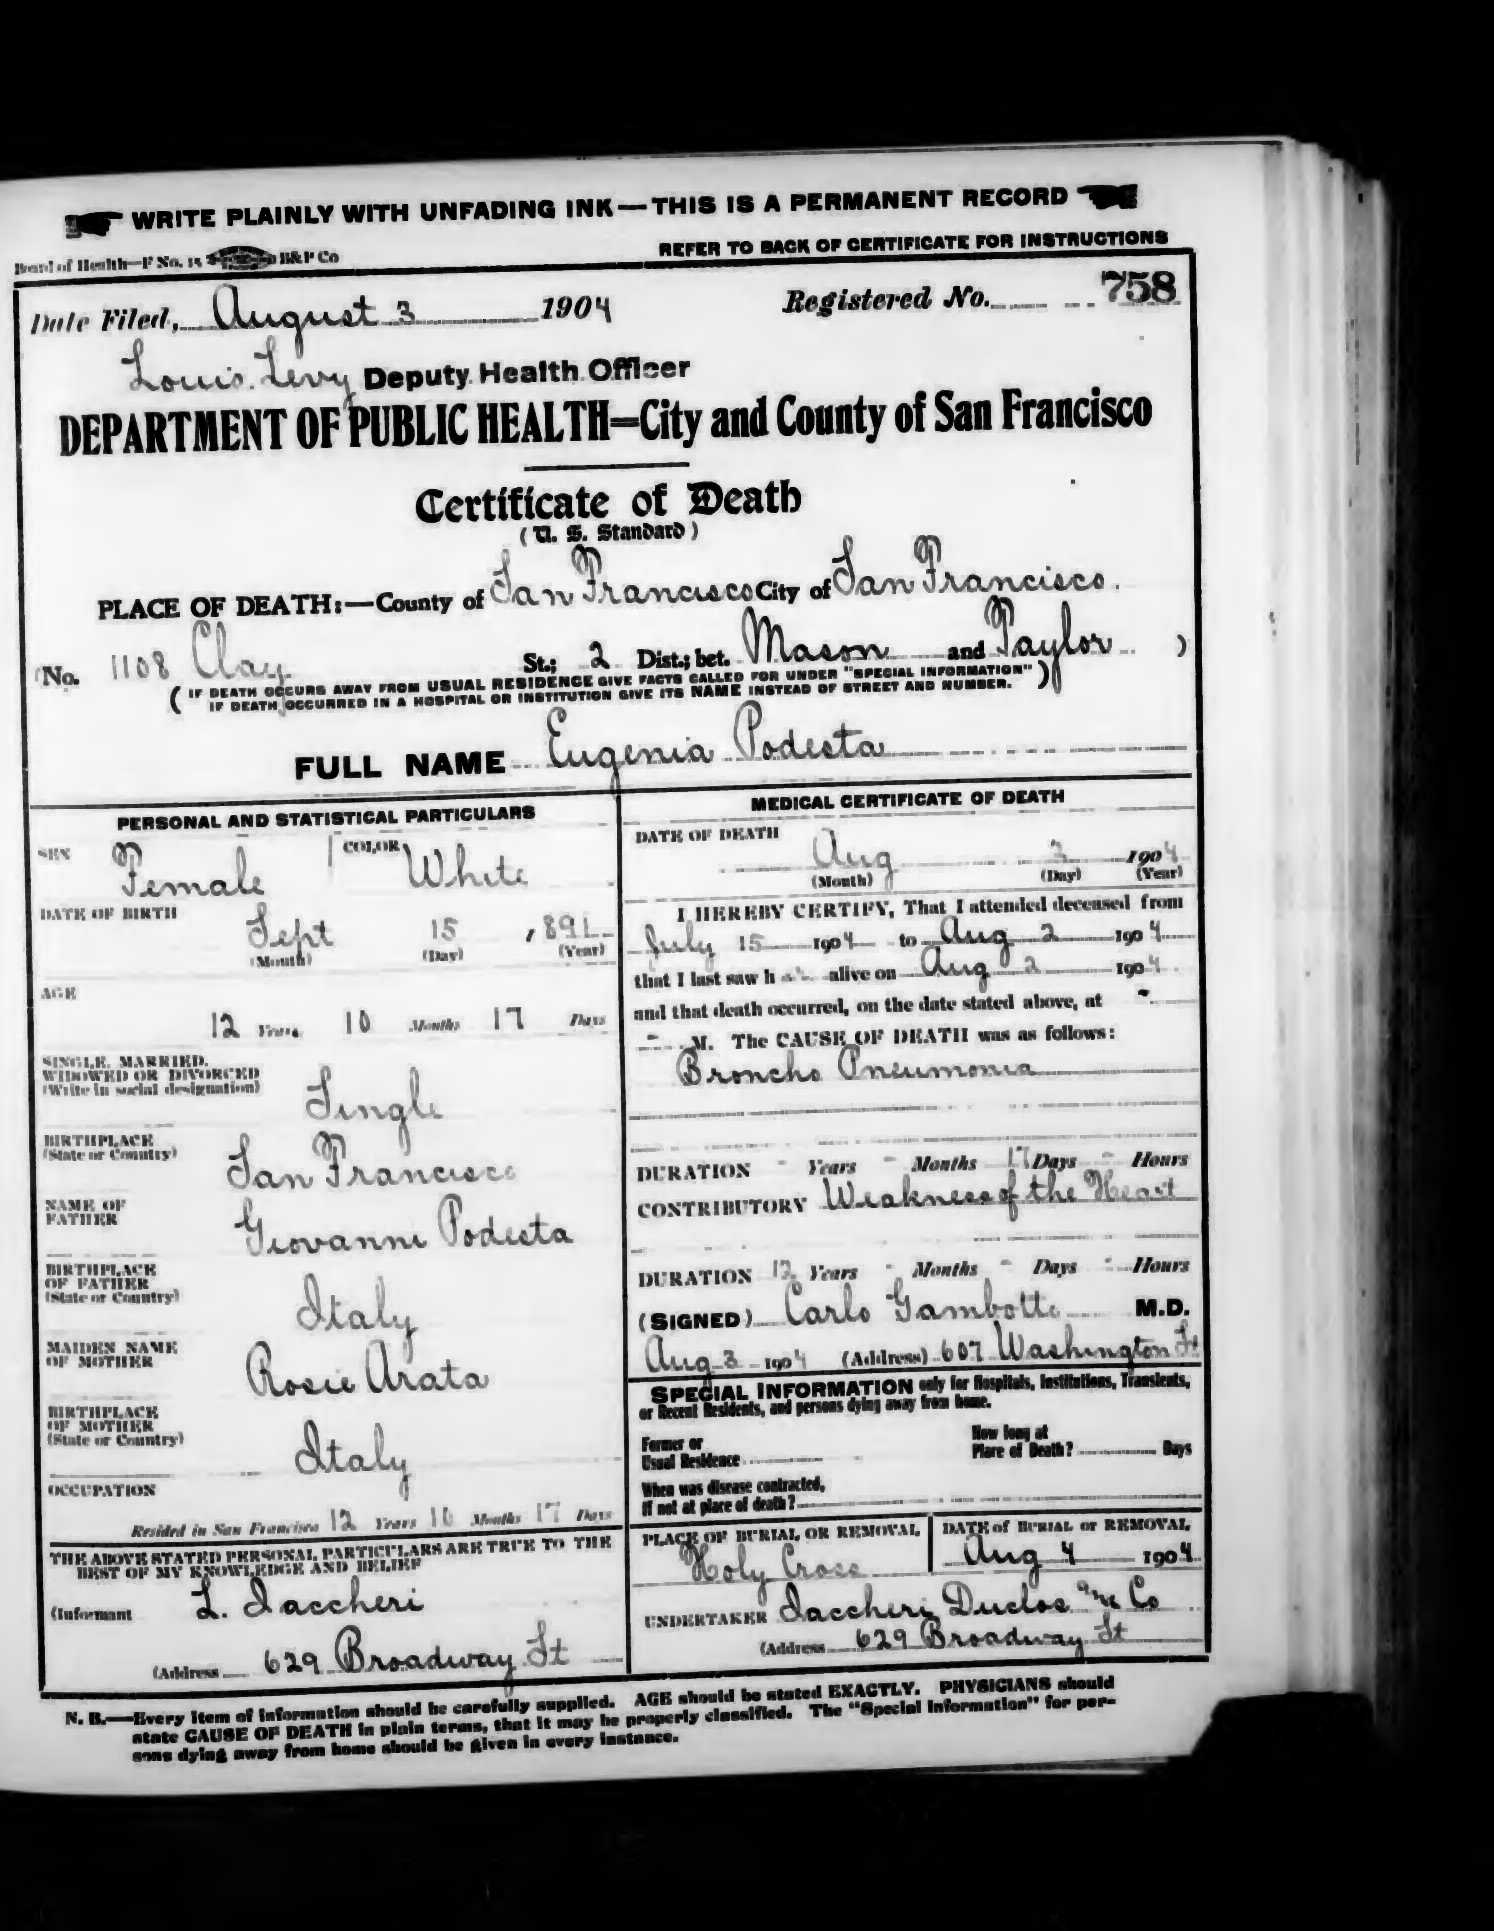 WRITE PLAINLY WITH UNFADING INK—THIS IS A PERMANENT RECORD
Board of Health—F No. 15 B&P Co REFER TO BACK OF CERTIFICATE FOR INSTRUCTIONS
Date Filed, August 3 1904 Registered No. 758
Louis Levy Deputy Health Officer
DEPARTMENT OF PUBLIC HEALTH=City and County of San Francisco
Certificate of Death
(U. S. Standard)
PLACE OF DEATH:—County of San Francisco City of San Francisco.
(No. 1108 Clay St.; 2 Dist.; bet. Mason and Taylor )
( IF DEATH OCCURS AWAY FROM USUAL RESIDENCE GIVE FACTS CALLED FOR UNDER "SPECIAL INFORMATION" )
IF DEATH OCCURRED IN A HOSPITAL OR INSTITUTION GIVE ITS NAME INSTEAD OF STREET AND NUMBER.
FULL NAME Eugenia Podesta
PERSONAL AND STATISTICAL PARTICULARS
SEX Female COLOR White
DATE OF BIRTH
Sept 15 , 891
(Month) (Day) (Year)
AGE
12 Years 10 Months 17 Days
SINGLE, MARRIED,
WIDOWED OR DIVORCED
(Write in social designation) Single
BIRTHPLACE
(State or Country) San Francisco
NAME OF
FATHER Giovanni Podesta
BIRTHPLACE
OF FATHER
(State or Country) Italy
MAIDEN NAME
OF MOTHER Rosie Arata
BIRTHPLACE
OF MOTHER
(State or Country) Italy
OCCUPATION
Resided in San Francisco 12 Years 10 Months 17 Days
THE ABOVE STATED PERSONAL PARTICULARS ARE TRUE TO THE
BEST OF MY KNOWLEDGE AND BELIEF
(Informant L. Iaccheri
(Address 629 Broadway St
MEDICAL CERTIFICATE OF DEATH
DATE OF DEATH
Aug 1904
(Month) (Day) (Year)
I HEREBY CERTIFY, That I attended deceased from
July 15 1904 to Aug 2 1904
that I last saw h alive on Aug 2 1904
and that death occurred, on the date stated above, at -
- M. The CAUSE OF DEATH was as follows:
Broncho Pneumonia
DURATION - Years - Months 17 Days - Hours
CONTRIBUTORY Weakness of the Heart
DURATION 12 Years - Months - Days - Hours
(SIGNED) Carlo Gambotti M.D.
Aug 3 1904 (Address) 607 Washington St
SPECIAL INFORMATION only for Hospitals, Institutions, Transients,
or Recent Residents, and persons dying away from home.
Former or
Usual Residence
How long at
Place of Death? Days
When was disease contracted,
If not at place of death?
PLACE OF BURIAL OR REMOVAL
Holy Cross
DATE of BURIAL or REMOVAL
Aug 4 1904
UNDERTAKER Iaccheri Duclos & Co
(Address 629 Broadway St
N. B.—Every item of information should be carefully supplied. AGE should be stated EXACTLY. PHYSICIANS should
state CAUSE OF DEATH in plain terms, that it may be properly classified. The "Special Information" for per-
sons dying away from home should be given in every instance.